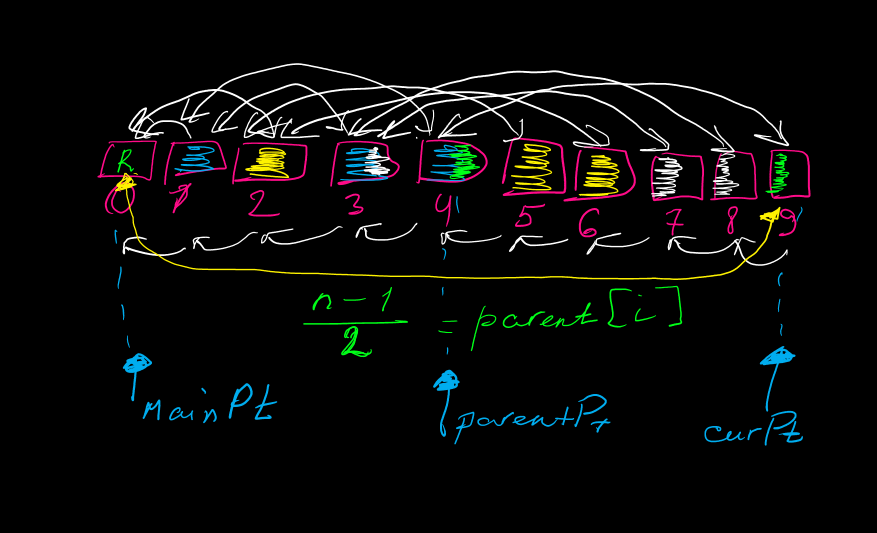 R
0 1 2 3 4 5 6 7 8 9
n-1
2 = parent[i]
mainPt
parentPt
curPt